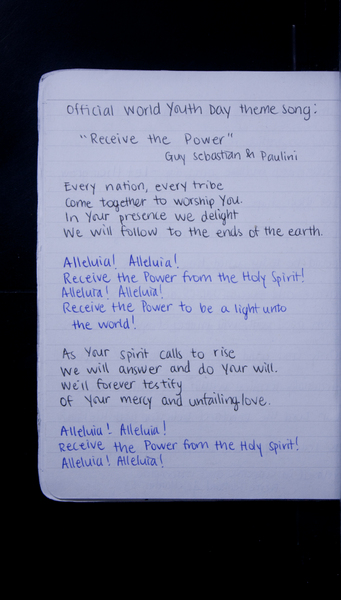 Official World Youth Day theme song:
"Receive the Power"
Guy Sebastian & Paulini
Every nation, every tribe
Come together to worship You.
In Your presence we delight
We will follow to the ends of the earth.
Alleluia! Alleluia!
Receive the Power from the Holy Spirit!
Alleluia! Alleluia!
Receive the Power to be a light unto
the world!
As Your spirit calls to rise
We will answer and do Your will.
We'll forever testify
Of Your mercy and unfailing love.
Alleluia! Alleluia!
Receive the Power from the Holy Spirit!
Alleluia! Alleluia!